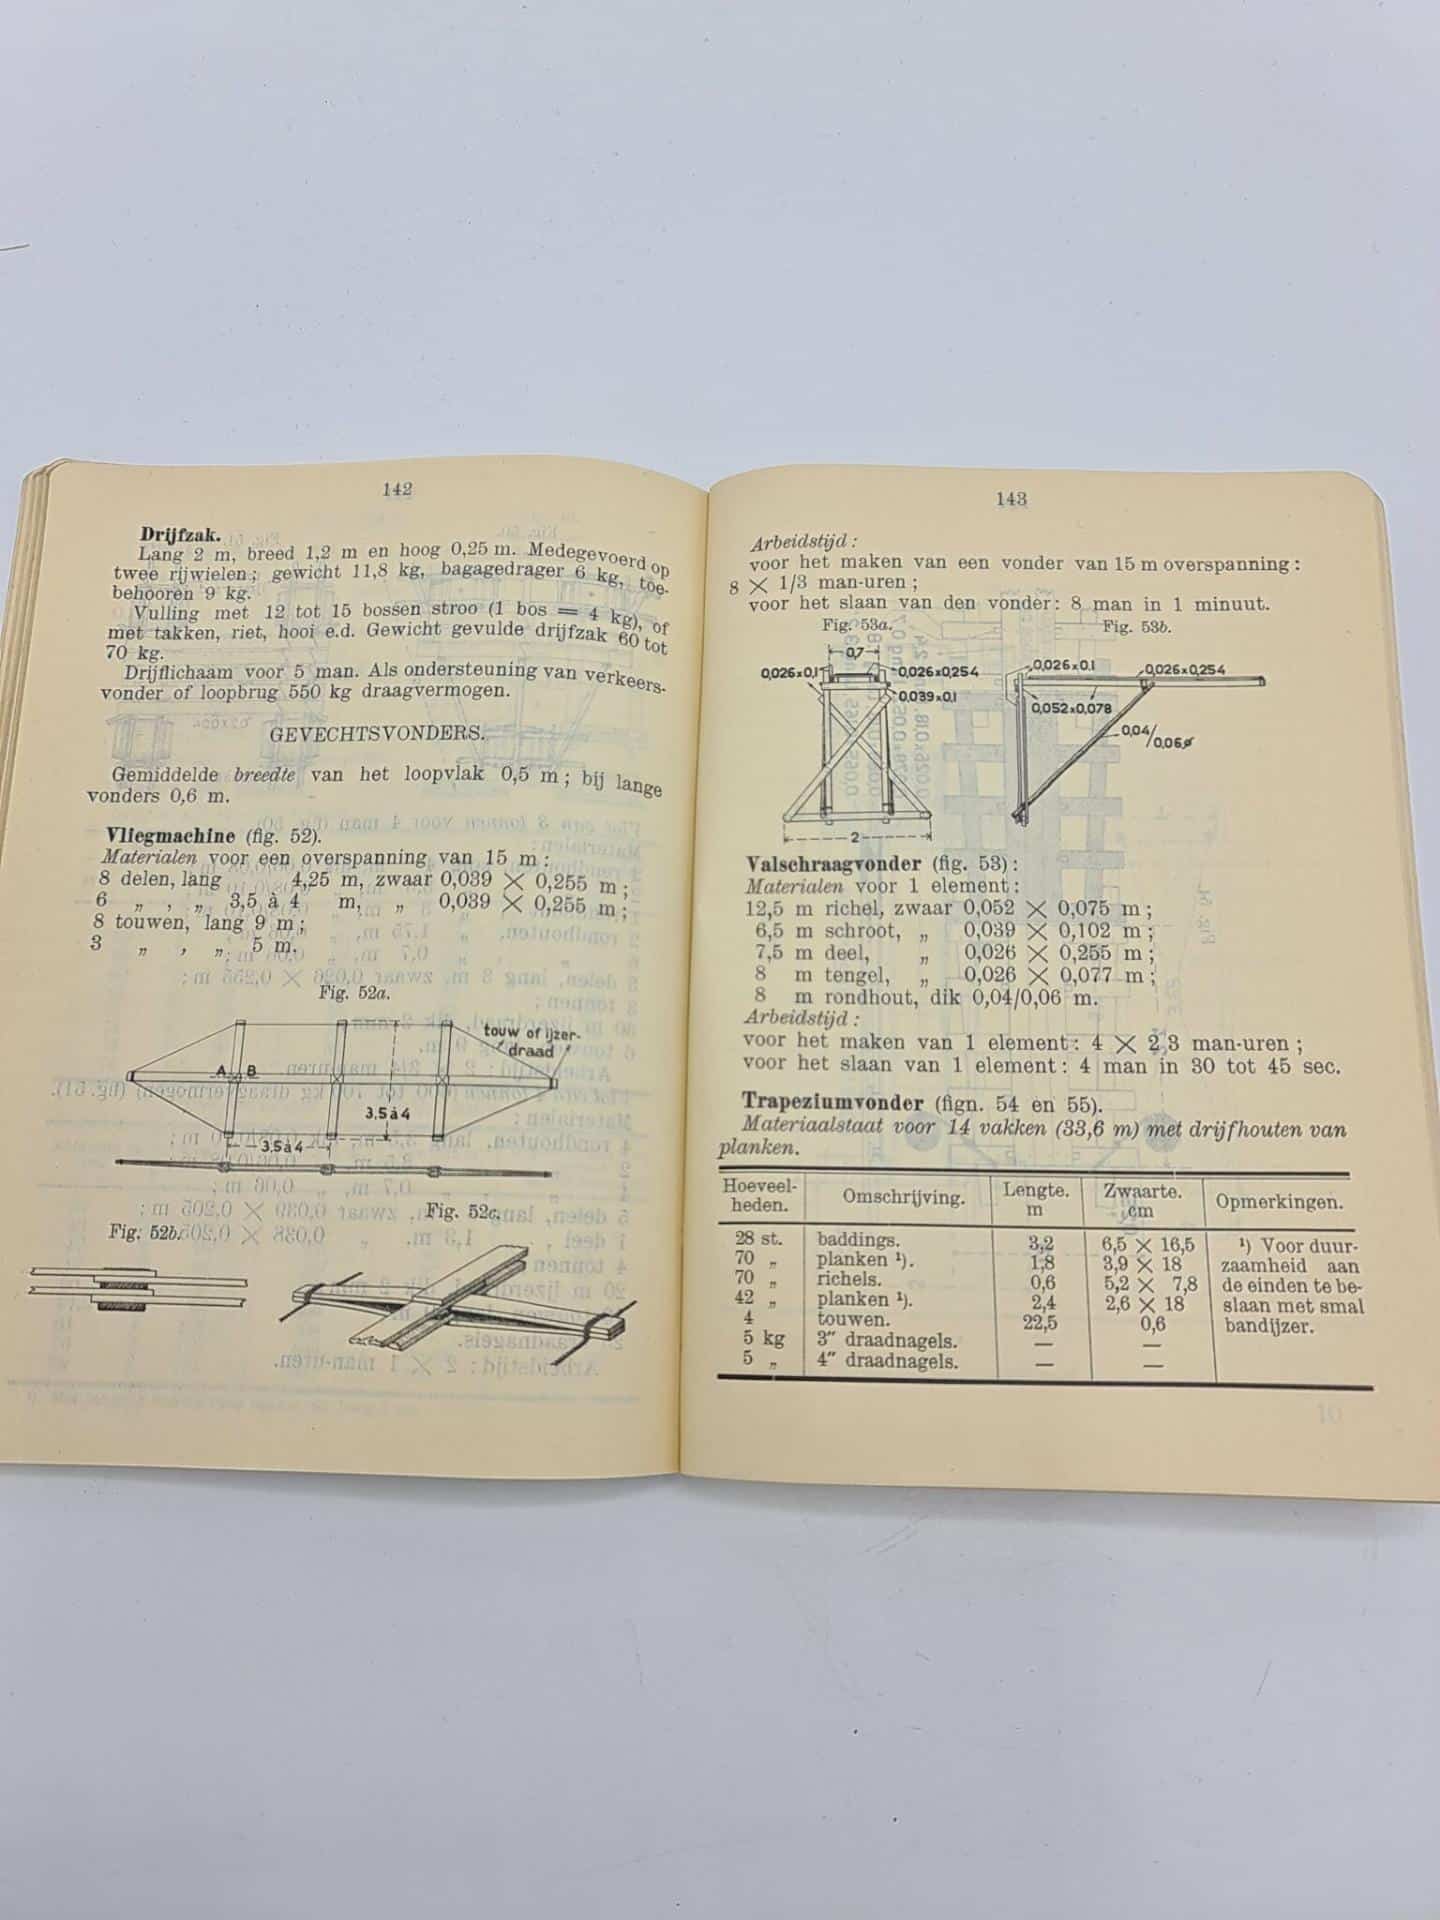 142
Drijfzak.
Lang 2 m, breed 1,2 m en hoog 0,25 m. Medegevoerd op
twee rijwielen; gewicht 11,8 kg, bagagedrager 6 kg, toe-
behooren 9 kg.
Vulling met 12 tot 15 bossen stroo (1 bos = 4 kg), of
met takken, riet, hooi e.d. Gewicht gevulde drijfzak 60 tot
70 kg.
Drijflichaam voor 5 man. Als ondersteuning van verkeers-
vonder of loopbrug 550 kg draagvermogen.
GEVECHTSVONDERS.
Gemiddelde breedte van het loopvlak 0,5 m; bij lange
vonders 0,6 m.
Vliegmachine (fig. 52).
Materialen voor een overspanning van 15 m:
8 delen, lang 4,25 m, zwaar 0,039 × 0,255 m;
6 „ , „ 3,5 à 4 m, „ 0,039 × 0,255 m;
8 touwen, lang 9 m;
3 „ , „ 5 m.
Fig. 52a.
touw of ijzer-
draad
A B
3,5 à 4
3,5 à 4
Fig. 52c.
Fig. 52b.
143
Arbeidstijd:
voor het maken van een vonder van 15 m overspanning:
8 × 1/3 man-uren;
voor het slaan van den vonder: 8 man in 1 minuut.
Fig. 53a. Fig. 53b.
0,7
0,026x0,1 0,026x0,254
0,039x0,1
2
0,026x0,1 0,026x0,254
0,052x0,078
0,04/0,06ø
Valschraagvonder (fig. 53):
Materialen voor 1 element:
12,5 m richel, zwaar 0,052 × 0,075 m;
6,5 m schroot, „ 0,039 × 0,102 m;
7,5 m deel, „ 0,026 × 0,255 m;
8 m tengel, „ 0,026 × 0,077 m;
8 m rondhout, dik 0,04/0,06 m.
Arbeidstijd:
voor het maken van 1 element: 4 × 2,3 man-uren;
voor het slaan van 1 element: 4 man in 30 tot 45 sec.
Trapeziumvonder (fign. 54 en 55).
Materiaalstaat voor 14 vakken (33,6 m) met drijfhouten van
planken.
Hoeveel- Omschrijving. Lengte. Zwaarte. Opmerkingen.
heden. m cm
28 st. baddings. 3,2 6,5 × 16,5 ¹) Voor duur-
70 „ planken ¹). 1,8 3,9 × 18 zaamheid aan
70 „ richels. 0,6 5,2 × 7,8 de einden te be-
42 „ planken ¹). 2,4 2,6 × 18 slaan met smal
4 touwen. 22,5 0,6 bandijzer.
5 kg 3″ draadnagels. — —
5 „ 4″ draadnagels. — —